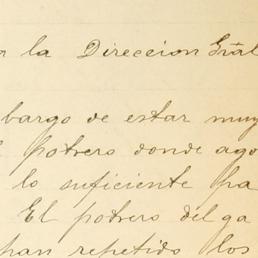 r la Direccion Gral
bargo de estar muy
potrero donde ago
lo suficiente pa
El potrero del ga
han repetido los